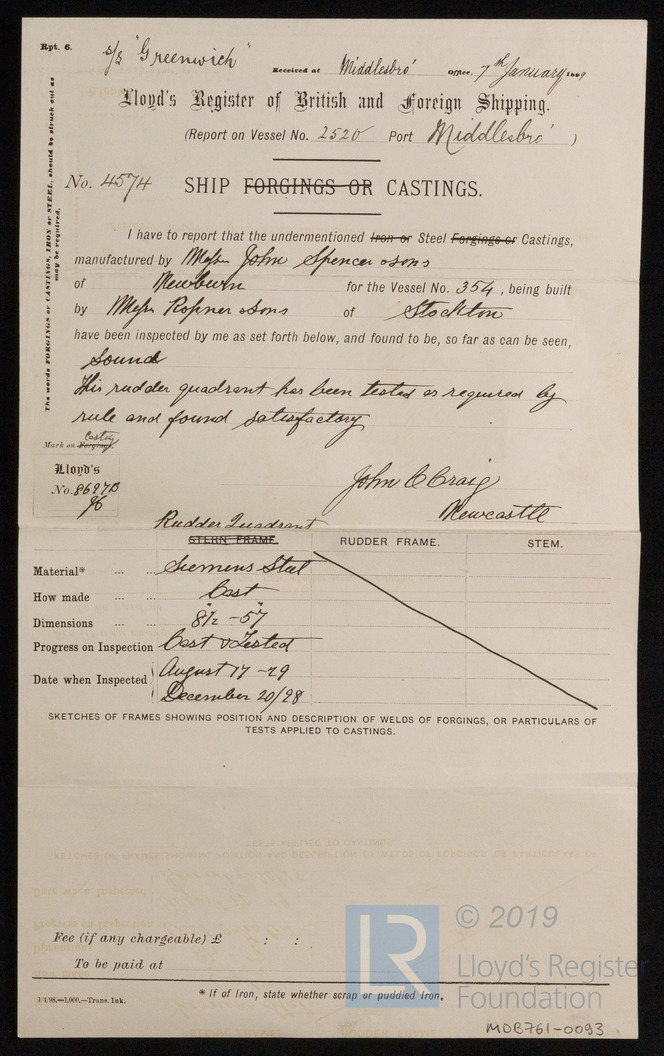 Rpt. 6.
s/s "Greenwich"
Received at Middlesbro' Office, 7th January 1899
Lloyd's Register of British and Foreign Shipping.
(Report on Vessel No. 2520 Port Middlesbro')
No. 4574 SHIP FORGINGS OR CASTINGS.
The words FORGINGS or CASTINGS, IRON or STEEL, should be struck out as
may be required.
I have to report that the undermentioned Iron or Steel Forgings or Castings,
manufactured by Messrs John Spencer & Sons
of Newburn for the Vessel No. 354, being built
by Messrs Ropner & Sons of Stockton
have been inspected by me as set forth below, and found to be, so far as can be seen,
sound
This rudder quadrant has been tested as required by
rule and found satisfactory
Mark on Forging. Casting
Lloyd's
No. 8697B
John C Craig
Newcastle
Rudder Quadrant
STERN FRAME. RUDDER FRAME. STEM.
Material* ... ... Siemens Steel
How made ... ... Cast
Dimensions ... ... 8½" - 57"
Progress on Inspection Cast & Tested
Date when Inspected August 17 - 29
December 20/98
SKETCHES OF FRAMES SHOWING POSITION AND DESCRIPTION OF WELDS OF FORGINGS, OR PARTICULARS OF
TESTS APPLIED TO CASTINGS.
Fee (if any chargeable) £ : :
To be paid at
* If of Iron, state whether scrap or puddled Iron.
1/1/98.—1,000.—Trans. Ink.
LR
© 2019
Lloyd's Register
Foundation
MDB761-0093